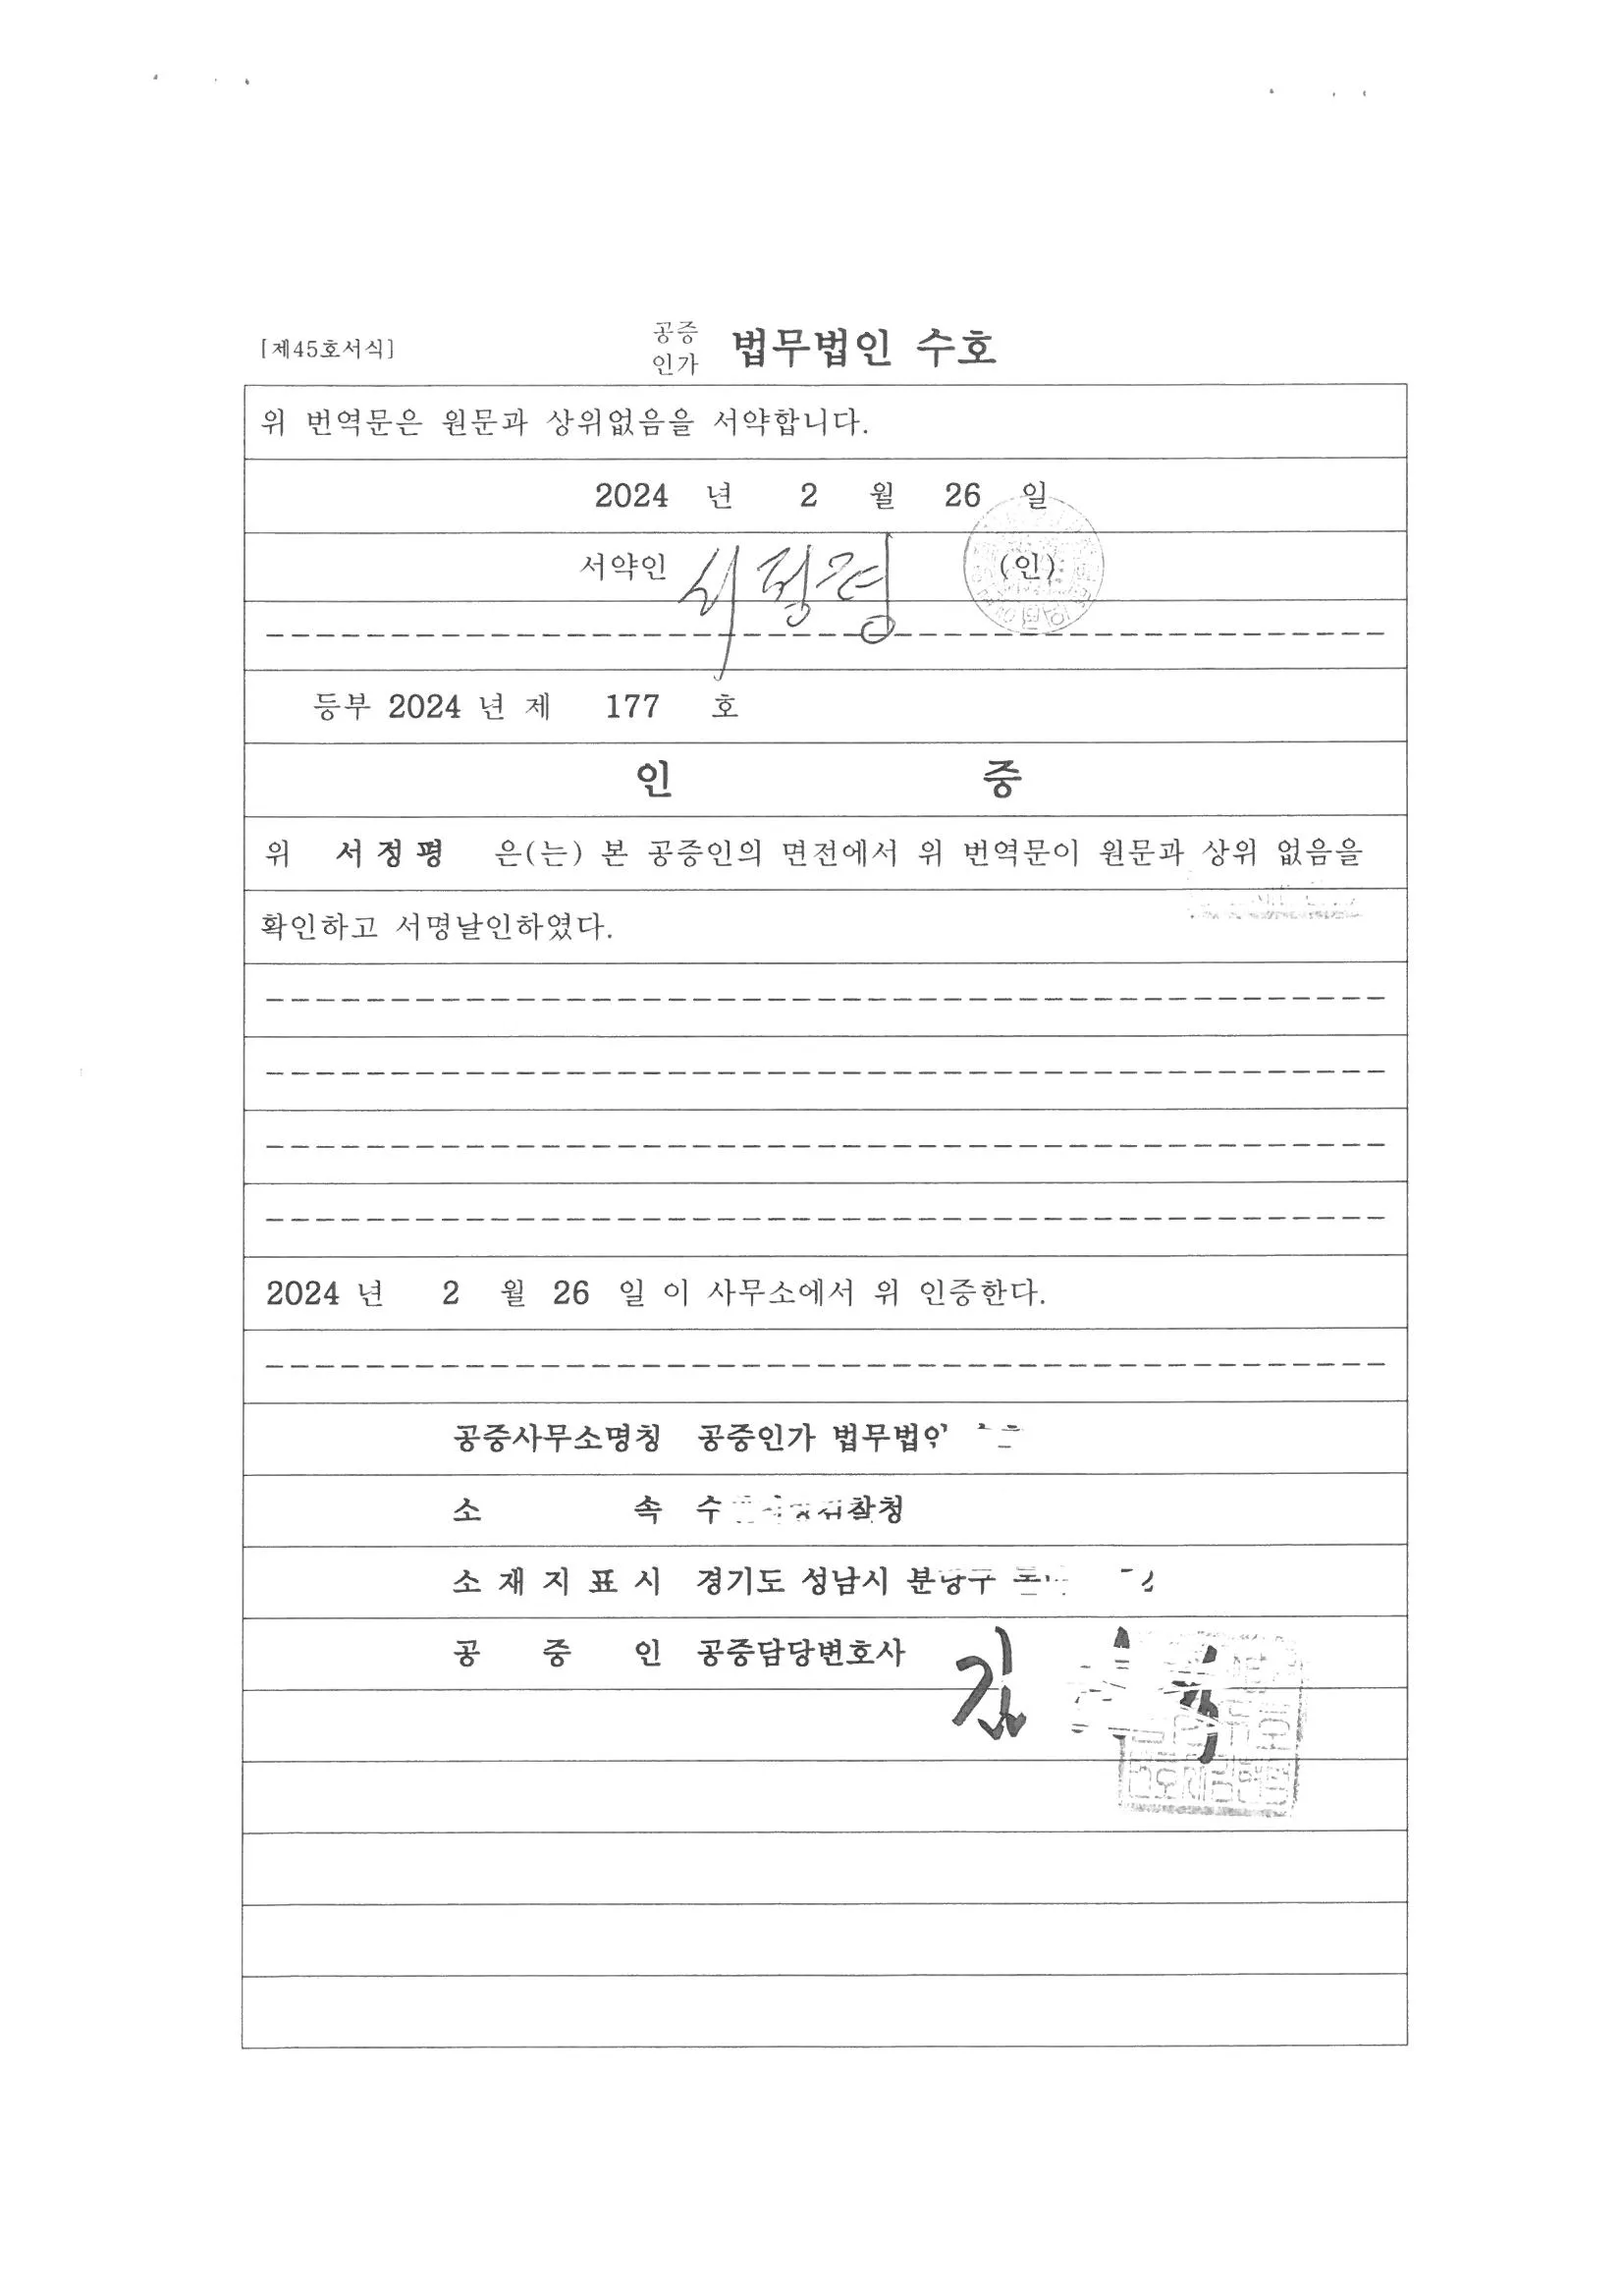 [제45호서식]
공증
인가
법무법인 수호
위 번역문은 원문과 상위없음을 서약합니다.
2024 년 2 월 26 일
서약인 (인)
등부 2024 년 제 177 호
인 증
위 서정평 은(는) 본 공증인의 면전에서 위 번역문이 원문과 상위 없음을
확인하고 서명날인하였다.
2024 년 2 월 26 일 이 사무소에서 위 인증한다.
공증사무소명칭 공증인가
소 속
소 재 지 표 시 경기도 성남시
공 증 인 공증담당변호사 김